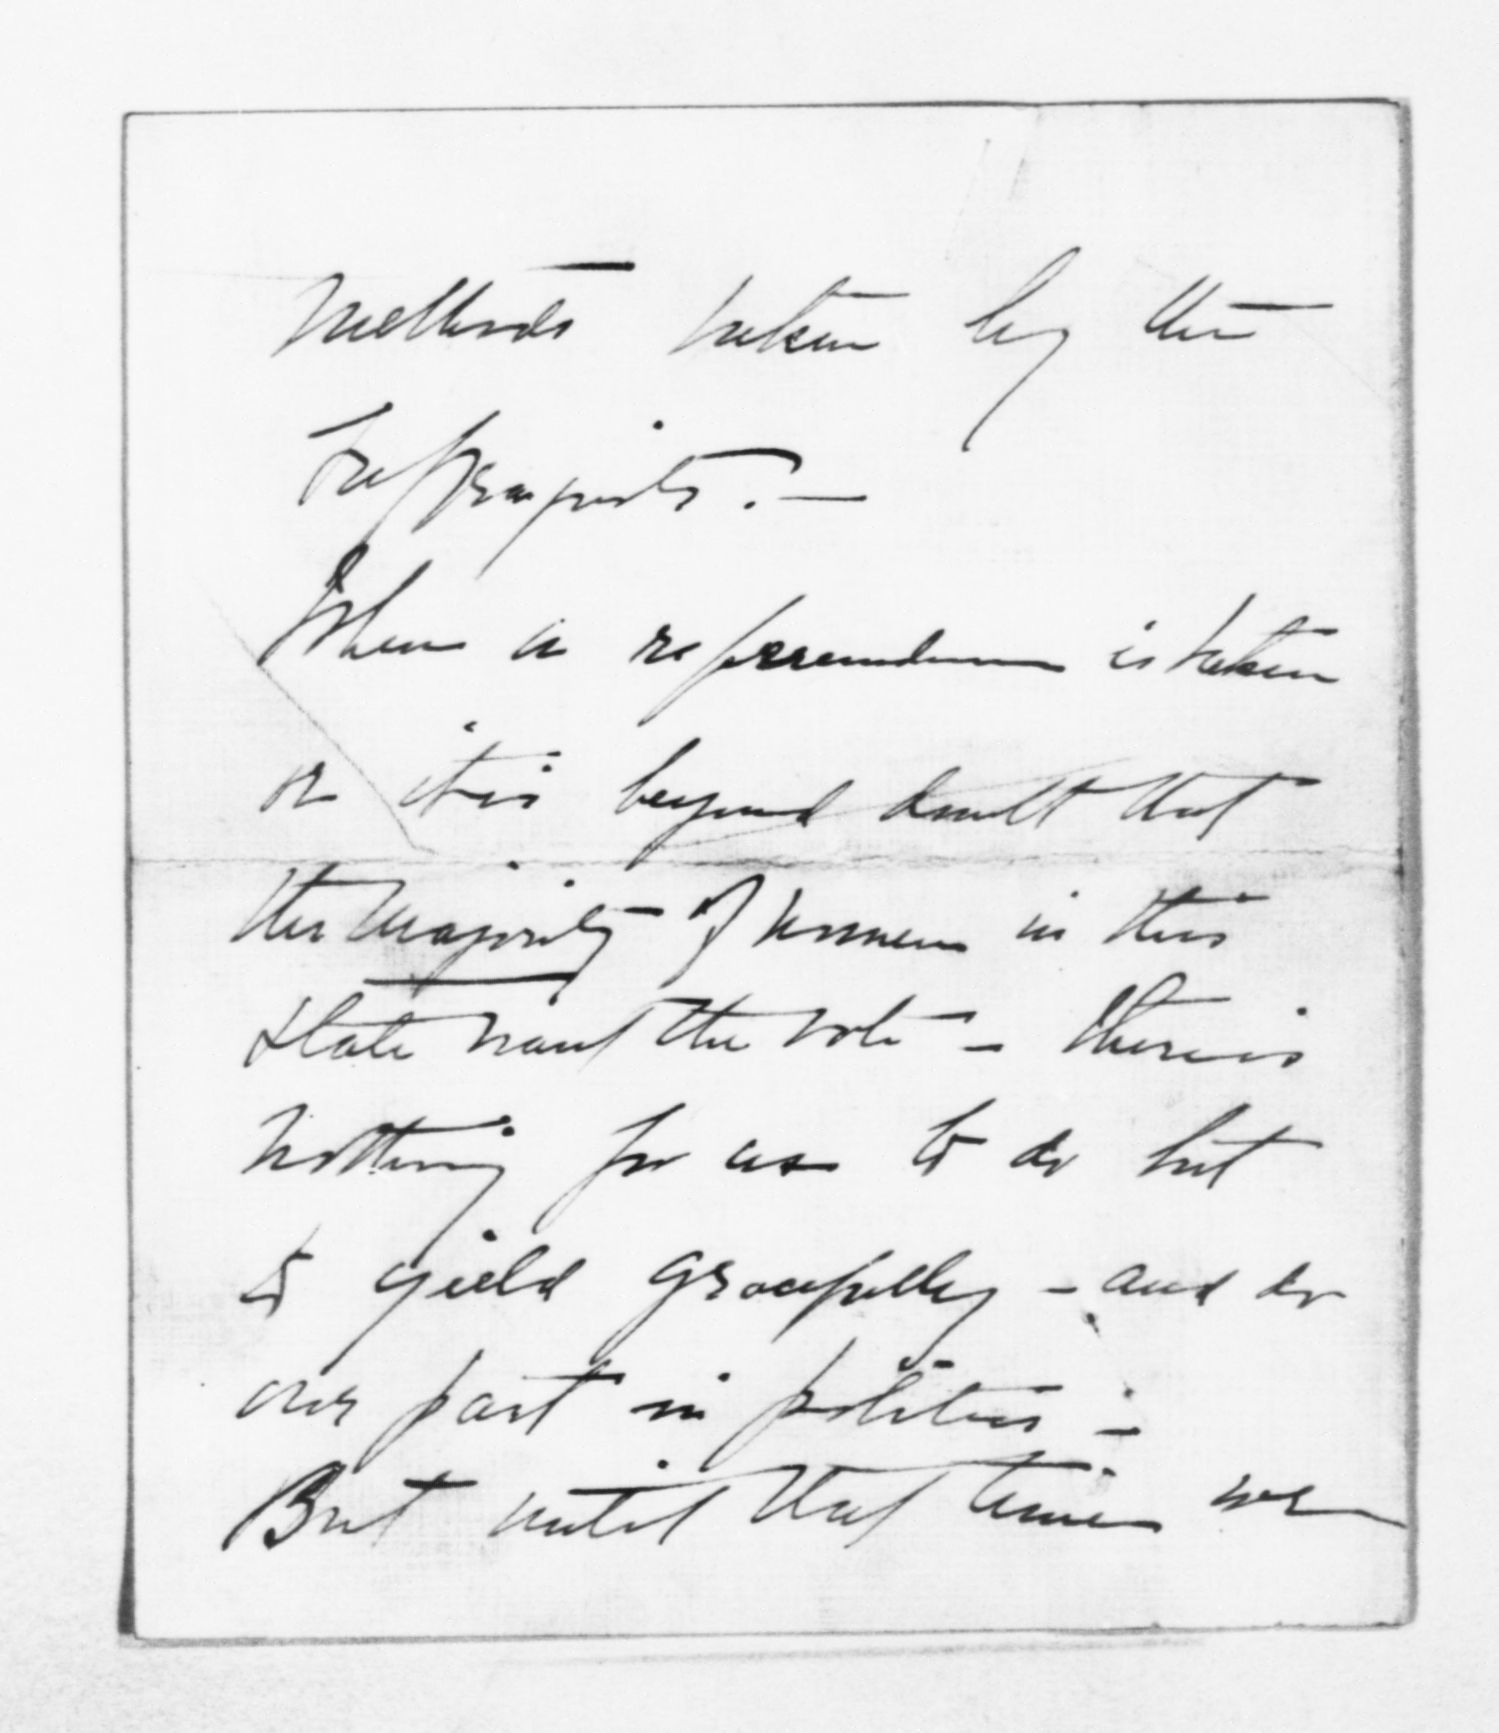 methods taken by the
Suffragists. —
When a referendum is taken
or it is beyond doubt that
the majority of women in this
State want the vote - there is
nothing for us to do but
to yield gracefully - and do
our part in politics -
But until that time we